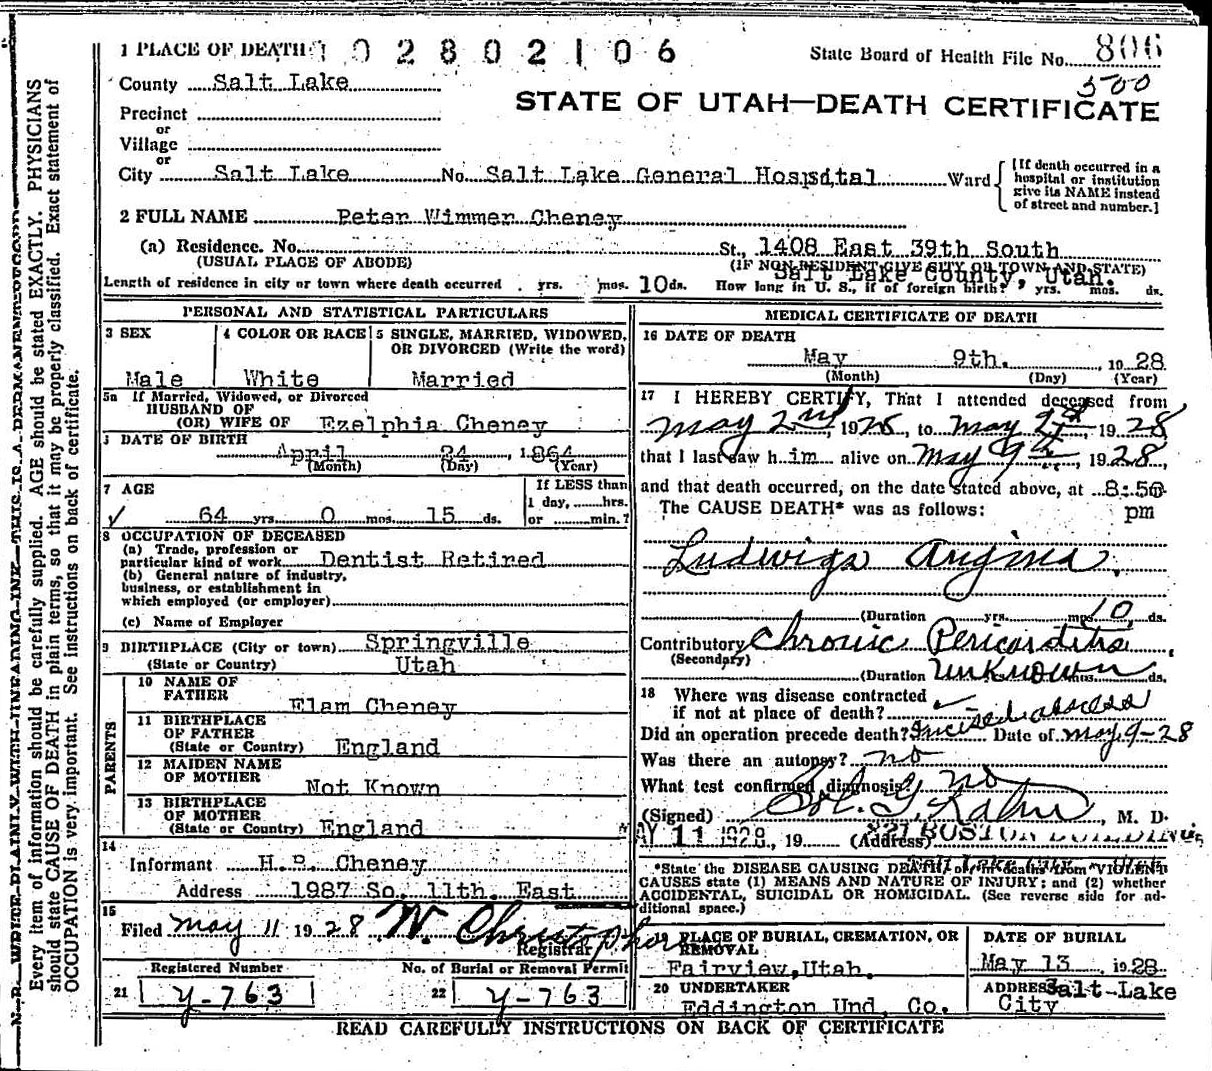 1 PLACE OF DEATH 02802106
State Board of Health File No. 806
County Salt Lake
500
STATE OF UTAH—DEATH CERTIFICATE
Precinct
or
Village
or
City Salt Lake No. Salt Lake General Hospital Ward
[If death occurred in a
hospital or institution
give its NAME instead
of street and number.]
2 FULL NAME Peter Wimmer Cheney
(a) Residence. No. St., 1408 East 39th South
(USUAL PLACE OF ABODE) (IF NON-RESIDENT GIVE CITY OR TOWN AND STATE)
Salt Lake County, Utah.
Length of residence in city or town where death occurred yrs. mos. 10 ds. How long in U. S., if of foreign birth? yrs. mos. ds.
PERSONAL AND STATISTICAL PARTICULARS
3 SEX
Male
4 COLOR OR RACE
White
5 SINGLE, MARRIED, WIDOWED,
OR DIVORCED (Write the word)
Married
5a If Married, Widowed, or Divorced
HUSBAND OF
(OR) WIFE OF Ezelphia Cheney
DATE OF BIRTH
April 24, 1864
(Month) (Day) (Year)
7 AGE
64 yrs. 0 mos. 15 ds.
If LESS than
1 day,......hrs.
or ......min.?
8 OCCUPATION OF DECEASED
(a) Trade, profession or
particular kind of work Dentist Retired
(b) General nature of industry,
business, or establishment in
which employed (or employer)
(c) Name of Employer
9 BIRTHPLACE (City or town) Springville
(State or Country) Utah
PARENTS
10 NAME OF
FATHER Elam Cheney
11 BIRTHPLACE
OF FATHER
(State or Country) England
12 MAIDEN NAME
OF MOTHER Not Known
13 BIRTHPLACE
OF MOTHER
(State or Country) England
14
Informant H.P. Cheney
Address 1987 So. 11th. East
15
Filed May 11 1928 W. Christopherson
Registrar
Registered Number
21 Y-763
No. of Burial or Removal Permit
22 Y-763
MEDICAL CERTIFICATE OF DEATH
16 DATE OF DEATH
May 9th. , 1928
(Month) (Day) (Year)
17 I HEREBY CERTIFY, That I attended deceased from
May 2nd, 1928, to May 9th, 1928
that I last saw him alive on May 9th, 1928,
and that death occurred, on the date stated above, at 8:50
The CAUSE DEATH* was as follows: pm
Ludwigs Angina.
(Duration yrs. mos. 10 ds.
Contributory Chronic Pericarditis
(Secondary)
(Duration Unknown mos. ds.
18 Where was disease contracted
if not at place of death?
Did an operation precede death? Incised abscess Date of May 9-28
Was there an autopsy? no
What test confirmed diagnosis? no
(Signed) Sol. G. Kahn, M. D.
MAY 11 1928, 19 (Address) BOSTON BUILDING
Salt Lake City
*State the DISEASE CAUSING DEATH, or in deaths from VIOLENT
CAUSES state (1) MEANS AND NATURE OF INJURY; and (2) whether
ACCIDENTAL, SUICIDAL OR HOMICIDAL. (See reverse side for ad-
ditional space.)
19 PLACE OF BURIAL, CREMATION, OR
REMOVAL
Fairview, Utah.
DATE OF BURIAL
May 13 , 1928
20 UNDERTAKER
Eddington Und. Co.
ADDRESS Salt-Lake
City
READ CAREFULLY INSTRUCTIONS ON BACK OF CERTIFICATE
N. B. WRITE PLAINLY WITH UNFADING INK—THIS IS A PERMANENT RECORD
Every item of information should be carefully supplied. AGE should be stated EXACTLY. PHYSICIANS
should state CAUSE OF DEATH in plain terms, so that it may be properly classified. Exact statement of
OCCUPATION is very important. See instructions on back of certificate.